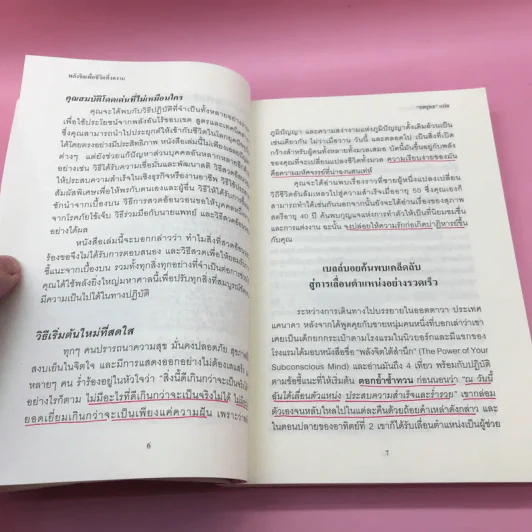 พลังจิตเพื่อชีวิตที่งดงาม
คุณสมบัติโดดเด่นที่ไม่เหมือนใคร
คุณจะได้พบกับวิธีปฏิบัติที่จำเป็นทั้งหลายอย่าง
เพื่อใช้ประโยชน์จากพลังอันไร้ขอบเขต สูตรและเทคนิค
ซึ่งคุณสามารถนำไปประยุกต์ใช้เข้ากับชีวิตในโลกยุค
ได้โดยตรงอย่างมีประสิทธิภาพ หนังสือเล่มนี้ไม่เพียง
ต่างๆ แต่ยังช่วยแก้ปัญหาส่วนบุคคลอันหลากหลาย
อย่างเช่น วิธีได้รับความเชื่อมั่นและพัฒนาสติ วิธี
ให้ประสบความสำเร็จในเชิงธุรกิจหรืองานอาชีพ วิธีใช้
สัมผัสพิเศษเพื่อให้พรกับตนเองและผู้อื่น วิธีให้ได้รับ
ชักนำจากเบื้องบน วิธีการสวดอ้อนวอนขอให้บุคคล
จากโรคภัยไข้เจ็บ วิธีร่วมมือกับนายแพทย์ และวิธีสวด
ได้ผล
หนังสือเล่มนี้จะบอกกล่าวว่า ทำไมสิ่งที่สวดอ้อนวอน
ร้องขอจึงไม่ได้รับการตอบสนอง และวิธีสวดเพื่อให้
ชี้แนะจากเบื้องบน รวมทั้งทุกสิ่งทุกอย่างที่จำเป็นต่อการ
คุณได้ใช้พลังยิ่งใหญ่มหาศาลนี้เพื่อปรับทุกสิ่งที่สมบูรณ์
มีความเป็นไปได้ในทางปฏิบัติ
วิธีเริ่มต้นใหม่ที่สดใส
ทุกๆ คนปรารถนาความสุข มั่นคงปลอดภัย สุขภาพ
สงบเย็นในจิตใจ และมีการแสดงออกอย่างไม่ต้องเสแสร้ง
หลายๆ คน ร่ำร้องอยู่ในหัวใจว่า "สิ่งนี้ดีเกินกว่าจะเป็นจริง
อย่างไรก็ตาม ไม่มีอะไรที่ดีเกินกว่าจะเป็นจริงไม่ได้ ไม่มี
ยอดเยี่ยมเกินกว่าจะเป็นเพียงแค่ความฝัน เพราะว่า
6
"ยศยูงค" แปล
ภูมิปัญญา และความสง่างามแห่งภูมิปัญญาดั้งเดิมอันเป็น
เช่นเดียวกัน ไม่ว่าเมื่อวาน วันนี้ และตลอดไป เป็นสิ่งที่เปิด
กว้างสำหรับผู้คนทั้งหลายมวลเสมอ บัดนี้มันขึ้นอยู่กับพลัง
ของคุณที่จะเปลี่ยนแปลงชีวิตทั้งมวล ความเรียบง่ายของมัน
คือความมหัศจรรย์ที่น่าฉงนสนเท่ห์
คุณจะได้อ่านพบเรื่องราวที่ชายผู้หนึ่งแปลงเปลี่ยน
วิถีชีวิตอันล้มเหลวไปสู่ความสำเร็จเมื่ออายุ 55 ซึ่งคุณเองก็
สามารถทำได้เช่นกันนอกจากนั้นยังจะได้อ่านเรื่องของสุภาพ
สตรีอายุ 40 ปี ค้นพบกุญแจแห่งการทำตัวให้เป็นที่นิยมชมชื่น
และการแต่งงาน ฉะนั้น จงปล่อยให้ความรักก่อเกิดปาฏิหาริย์ขึ้น
กับคุณ
เบลล์บอยค้นพบเคล็ดลับ
สู่การเลื่อนตำแหน่งอย่างรวดเร็ว
ระหว่างการเดินทางไปบรรยายในออตตาวา ประเทศ
แคนาดา หลังจากได้พูดคุยกับชายหนุ่มคนหนึ่งที่บอกเล่าว่าเขา
เคยเป็นเด็กยกกระเป๋าตามโรงแรมในนิวยอร์กและมีแขกของ
โรงแรมได้มอบหนังสือชื่อ "พลังจิตใต้สำนึก" (The Power of Your
Subconscious Mind) และอ่านมันถึง 4 เที่ยว พร้อมกับปฏิบัติ
ตามข้อชี้แนะที่ให้เริ่มต้น ตอกย้ำซ้ำทวน ก่อนนอนว่า "ณ วันนี้
ฉันได้เลื่อนตำแหน่ง ประสบความสำเร็จและร่ำรวย" เขากล่อม
ตัวเองจนหลับใหลไปในแต่ละคืนด้วยถ้อยคำเหล่าดังกล่าว และ
ในตอนปลายของอาทิตย์ที่ 2 เขาก็ได้รับเลื่อนตำแหน่งเป็นผู้ช่วย
7